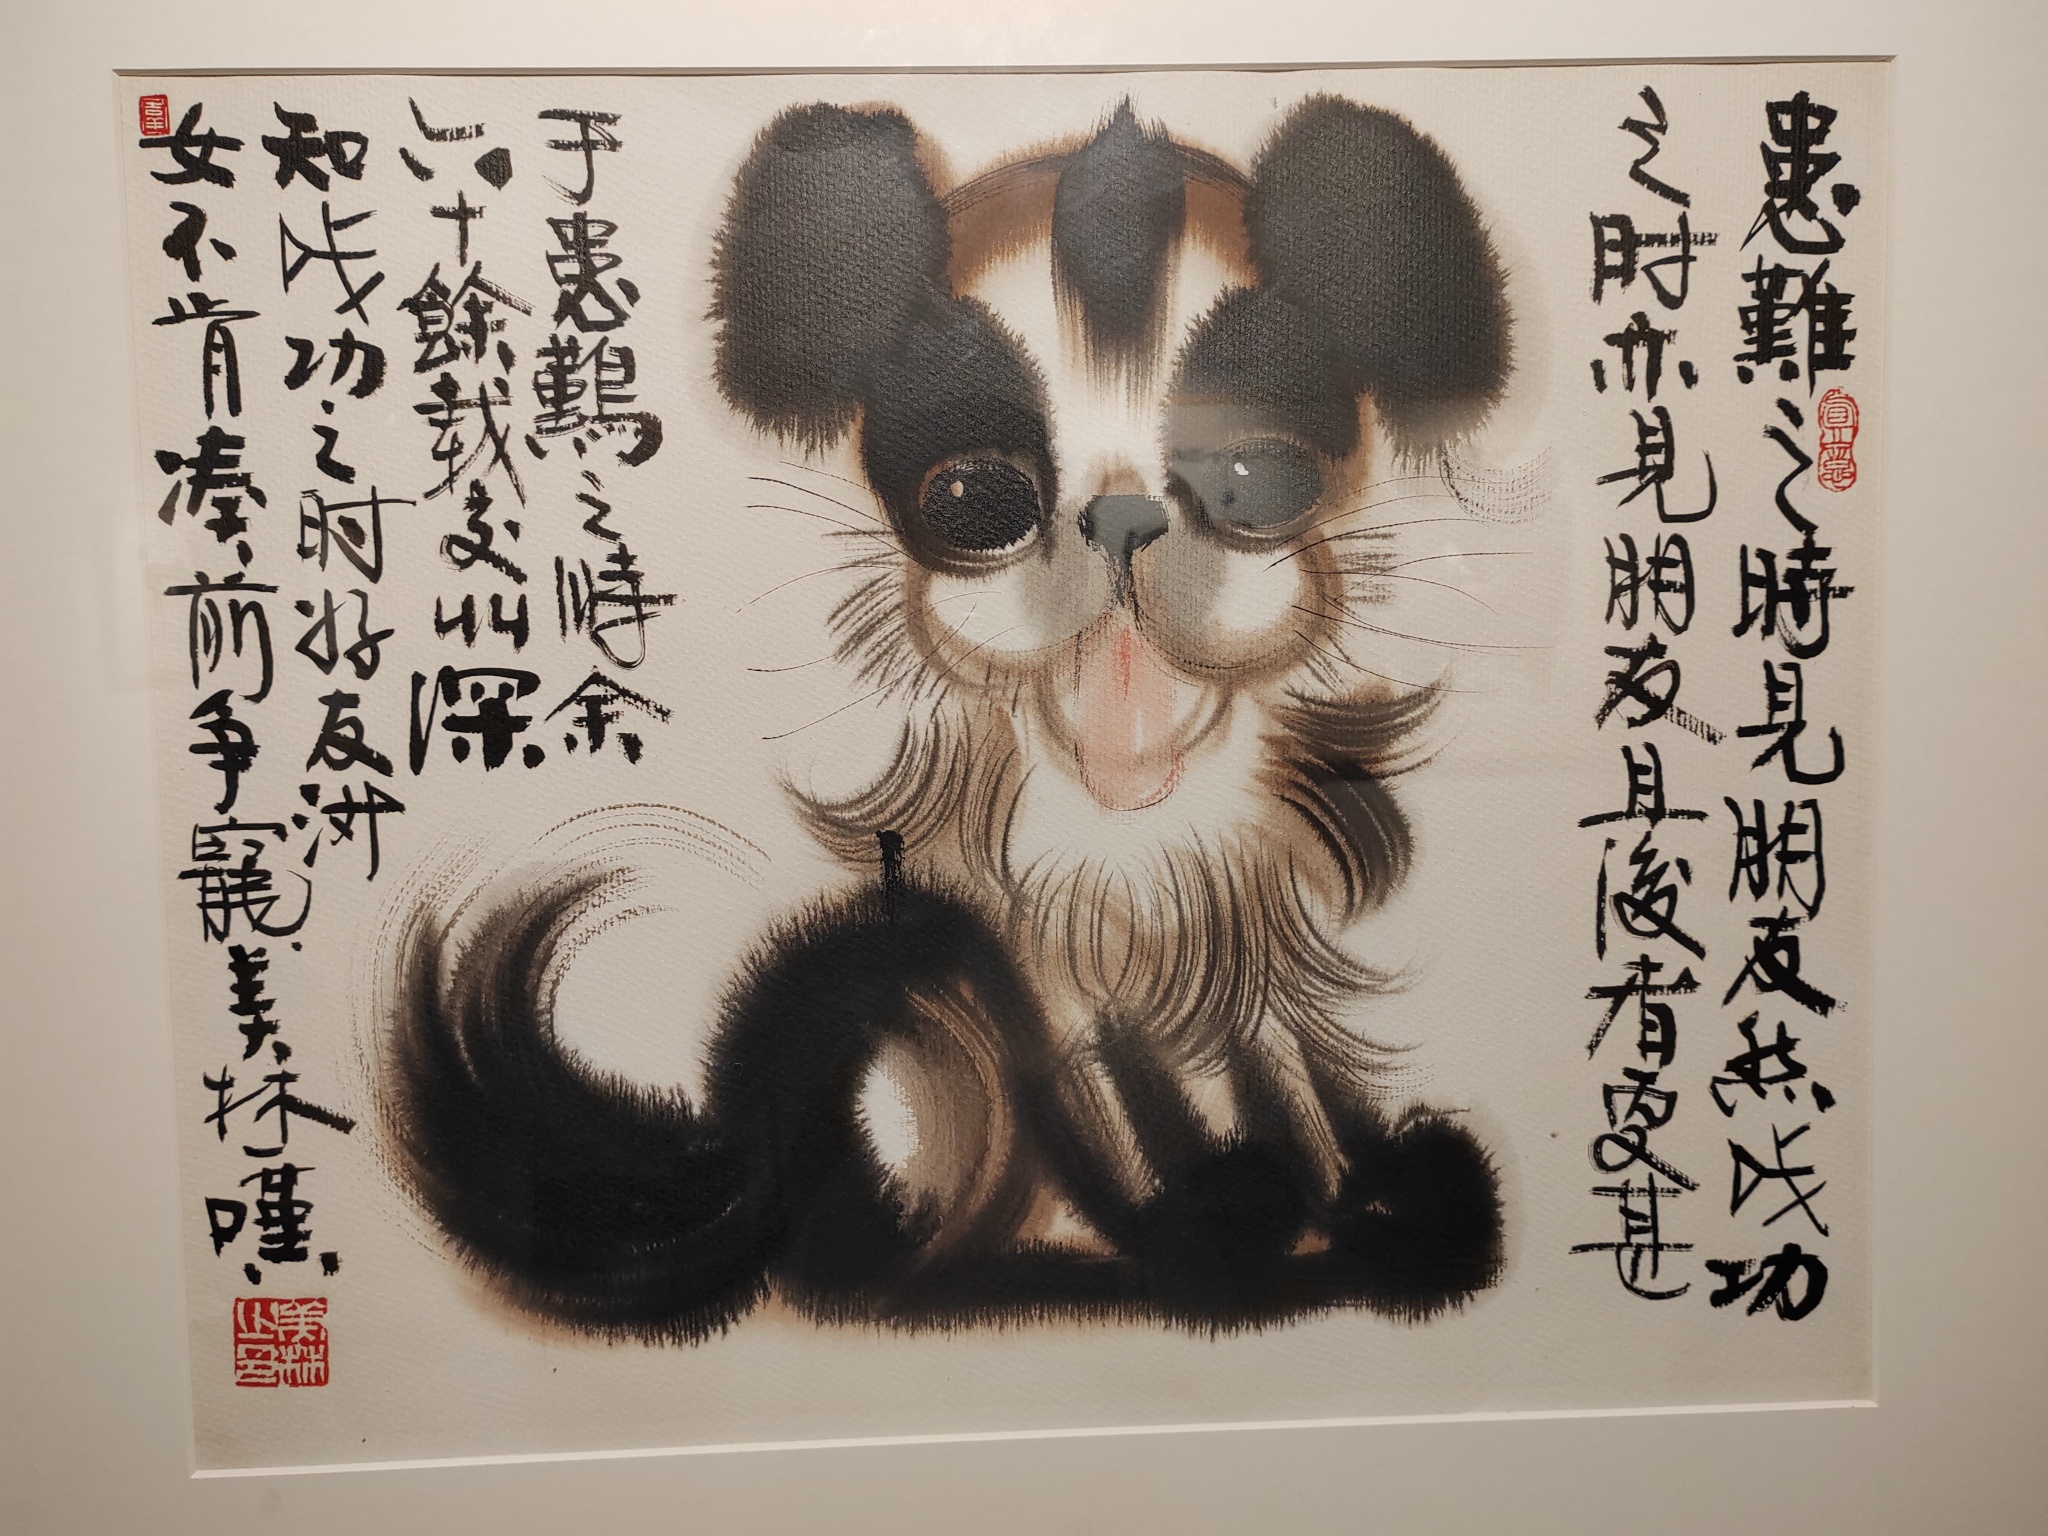 患難之時見朋友然成功
之時亦見朋友且後者更甚
于患難之時余
六十餘載交此深
知成功之时好友渺
女不肯凑前争寵美林嘆
美林